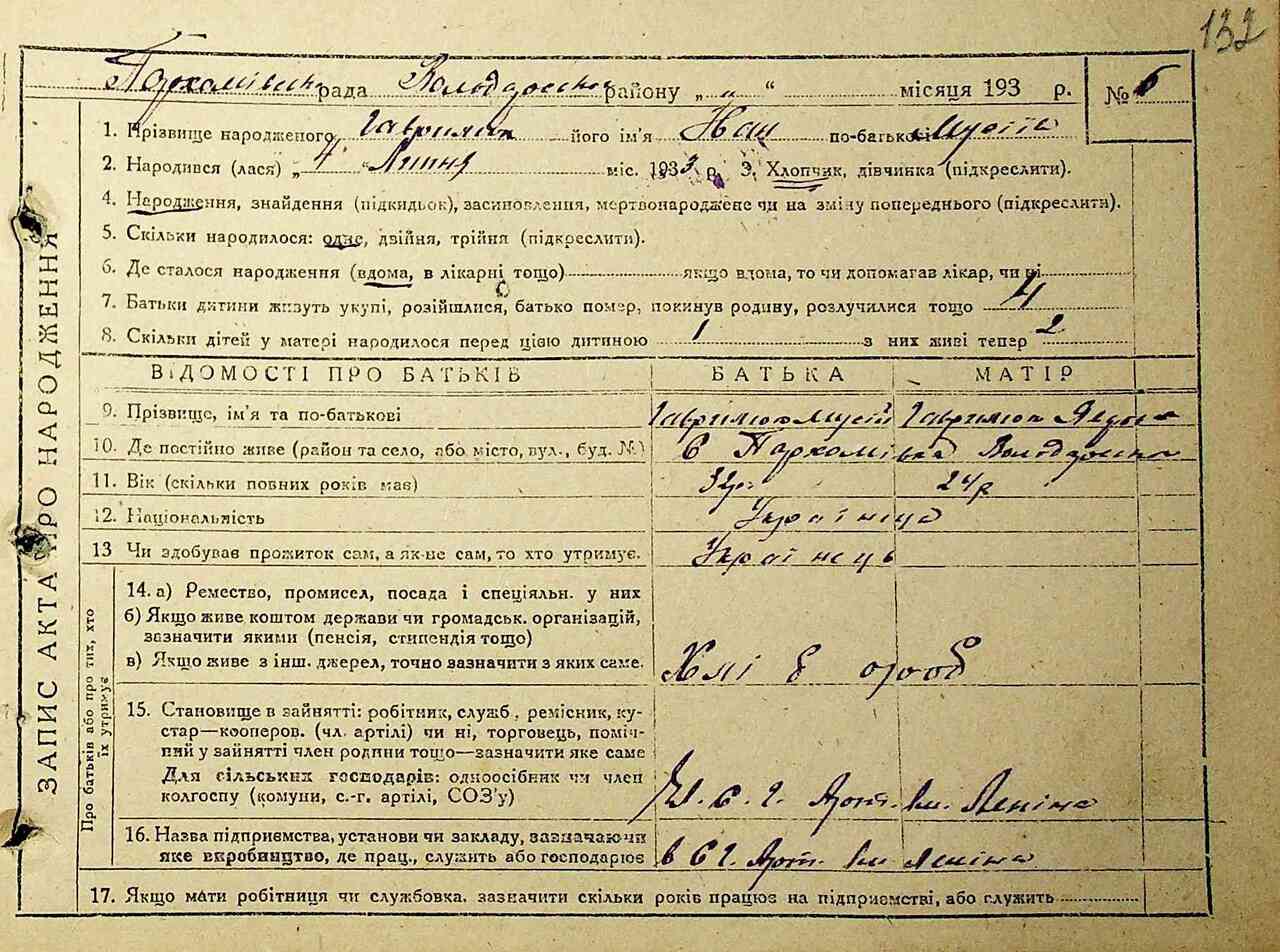 132
Пархомівська рада Володарського району „ „ “ місяця 193 р. № 6
1. Прізвище народженого Гаврилюк його ім'я Іван по-батькові Мусіїв
2. Народився (лася) „4“ Липня міс. 1933 р. 3. Хлопчик, дівчинка (підкреслити).
4. Народження, знайдення (підкидьок), засиновлення, мертвонароджене чи на зміну попереднього (підкреслити).
5. Скільки народилося: одне, двійня, трійня (підкреслити).
6. Де сталося народження (вдома, в лікарні тощо) якщо вдома, то чи допомагав лікар, чи ні
7. Батьки дитини живуть укупі, розійшлися, батько помер, покинув родину, розлучилися тощо
8. Скільки дітей у матері народилося перед цією дитиною 1 з них живі тепер 2
ВІДОМОСТІ ПРО БАТЬКІВ БАТЬКА МАТІР
9. Прізвище, ім'я та по-батькові Гаврилюк Мусій Гаврилюк
10. Де постійно живе (район та село, або місто, вул., буд. №) с Пархомівка
11. Вік (скільки повних років має) 32р. 24р
12. Національність Українець
13 Чи здобував прожиток сам, а як-не сам, то хто утримує. Українець
14. а) Ремество, промисел, посада і спеціяльн. у них
б) Якщо живе коштом держави чи громадськ. організацій,
зазначити якими (пенсія, стипендія тощо)
в) Якщо живе з інш. джерел, точно зазначити з яких саме.
15. Становище в зайнятті: робітник, служб., ремісник, ку-
стар—кооперов. (чл. артілі) чи ні, торговець, поміч-
ний у зайнятті член родини тощо—зазначити яке саме
Для сільських господарів: одноосібник чи член
колгоспу (комуни, с.-г. артілі, СОЗ'у) Чл. с. г. Арт. Ім. Леніна
16. Назва підприємства, установи чи закладу, зазначаючи
яке виробництво, де прац., служить або господарює в с г. Арт. Ім Леніна
17. Якщо мати робітниця чи службовка, зазначити скільки років працює на підприємстві, або служить
ЗАПИС АКТА ПРО НАРОДЖЕННЯ
Про батьків або про тих, хто
їх утримує